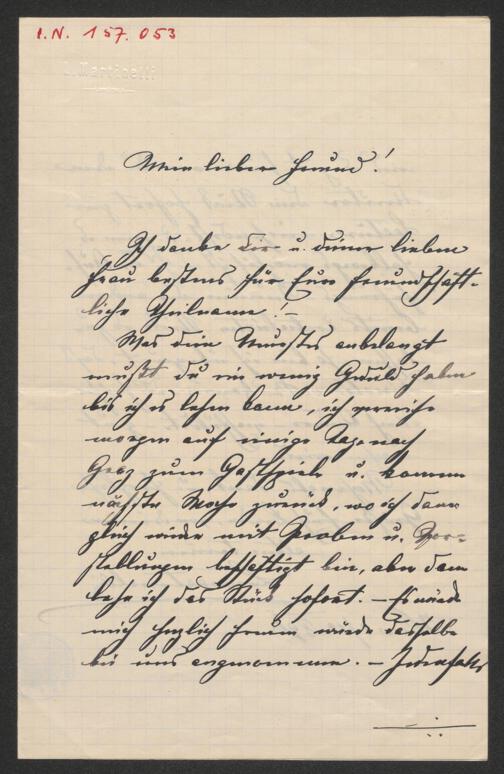 I.N. 157.053
L. Martinelli
Mein lieber Freund!
Ich danke Dir u. deiner lieben
Frau bestens für Eure freundschaft-
liche Theilname! –
Was dein Neuestes anbelangt
mußt du ein wenig Geduld haben
bis ich es lesen kann, ich verreise
morgen auf einige Tage nach
Graz zum Gastspiele u. komme
nächste Woche zurück, wo ich dann
gleich wieder mit Proben u. Vor-
stellungen beschäftigt bin, aber dann
lese ich das Stück sofort. – Es würde
mich herzlich freuen würde dasselbe
bei uns angenommen. – Jedenfalls